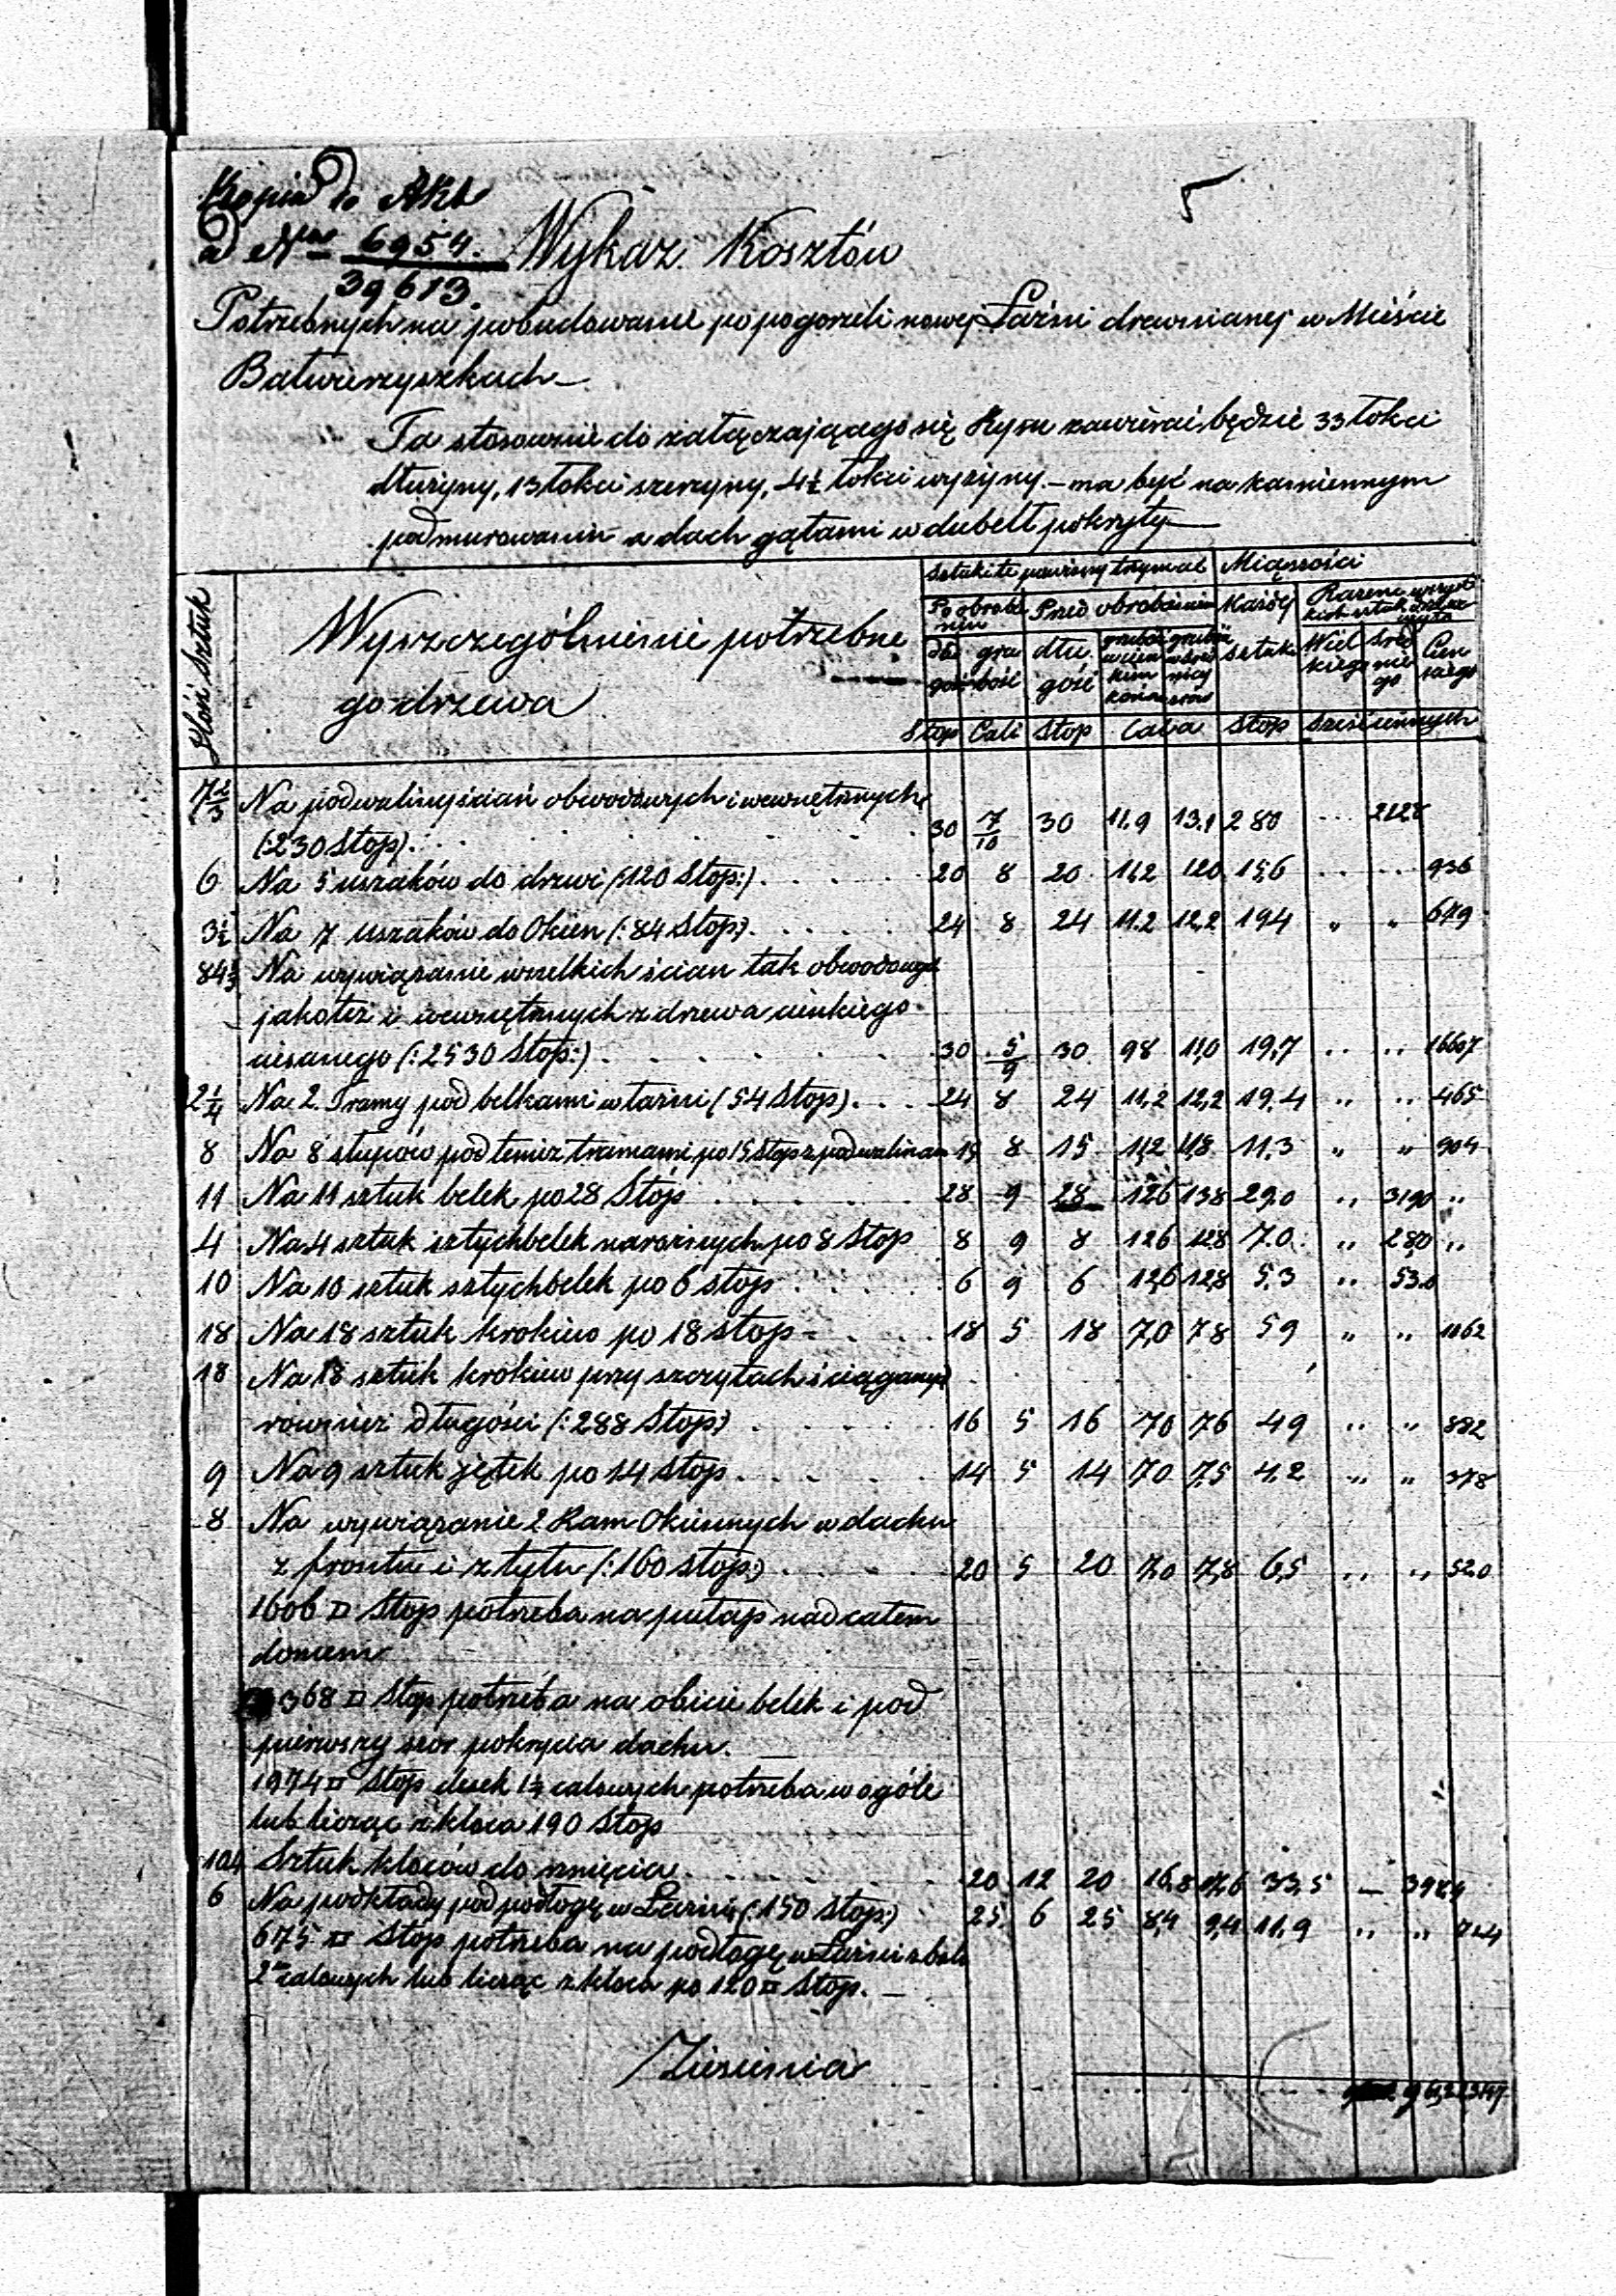 Kopia do Akt
a Nro 6954.
39613.
5
Wykaz Kosztów
Potrzebnych na pobudowanie po pogorzeli nowej Łaźni drewnianej w Mieście
Balwierzyszkach
Ta stosownie do załączającego się Rysu zawierać będzie 33 łokci
dłużyny, 13 łokci szerzyny, 4½ łokci wyżyny - ma być na kamiennym
podmurowaniu a dach gątami w dubelt pokryty
Ilość Sztuk
Wyszczególnienie potrzebne
go drzewa
Sztuki te powinny trzymać Miąższości
Po obrobieniu Przed obrobieniem Każdej Razem
długość grubość długość grubość w cień kim końcu sztuki Wielkiego Średniego Cien
Stop Cali Stop Cala Stop Sześciennych
7 2/3 Na podwaliny ścian obwodowych i wewnętrznych
(:230 Stop). 30 7/10 30 11.9 13.1 280 2128
6 Na 5 uszaków do drzwi (120 Stop:) 20 8 20 11,2 12,0 15,6 936
3½ Na 7 uszaków do Okien (:84 Stop:) 24 8 24 11.2 12,2 194 " " 679
84 1/3 Na wywiązanie wszelkich ścian tak obwodowych
jakoteż i wewnętrznych z drzewa cienkiego
ciesanego (:2530 Stop:) 30 5/9 30 98 11,0 19,7 " " 16607
2¼ Na 2. Tramy pod belkami w łaźni (54 Stop) 24 8 24 11,2 12,2 19,4 " " 465
8 Na 8 słupów pod temiż tramami po 15 Stop z podwalinami 15 8 15 11,2 11,8 11,3 " " 904
11 Na 11 sztuk belek po 28 Stop 28 9 28 12,6 13,8 29,0 " 3190 "
4 Na 4 sztuk sztychbelek narożnych po 8 Stop 8 9 8 126 128 7.0 " 280 "
10 Na 10 sztuk sztychbelek po 6 stop 6 9 6 12,6 12,8 5,3 " 53.0
18 Na 18 sztuk krokiew po 18 stop 18 5 18 7,0 7,8 59 " " 1062
18 Na 18 sztuk krokiew przy szczytach ściąganych
również długości (:288 Stop:) 16 5 16 70 76 49 " " 882
9 Na 9 sztuk jętek po 14 stop 14 5 14 70 7,5 4.2 " " 378
8 Na wywiązanie 2 Ram Okiennych w dachu
z frontu i z tyłu (:160 stop:) 20 5 20 7,0 7,8 6,5 " " 52.0
1606 □ Stop potrzeba na pułap nad całem
domem
368 □ Stop potrzeba na obicie belek i pod
pierwszy szor pokrycia dachu.
1974 □ Stop desek calowych potrzeba w ogóle
lub licząc z kloca 190 Stop
Sztuk kloców do rznięcia 20 12 20 16,8 17,6 33,5 —
6 Na podkłady pod podłogę w Łaźni (:150 stop:) 25 6 25 8,4 9,4 11.9 " "
675 □ Stop potrzeba na podłogę w Łaźni z bali
2 calowych lub licząc z kloca po 120 □ Stop. —